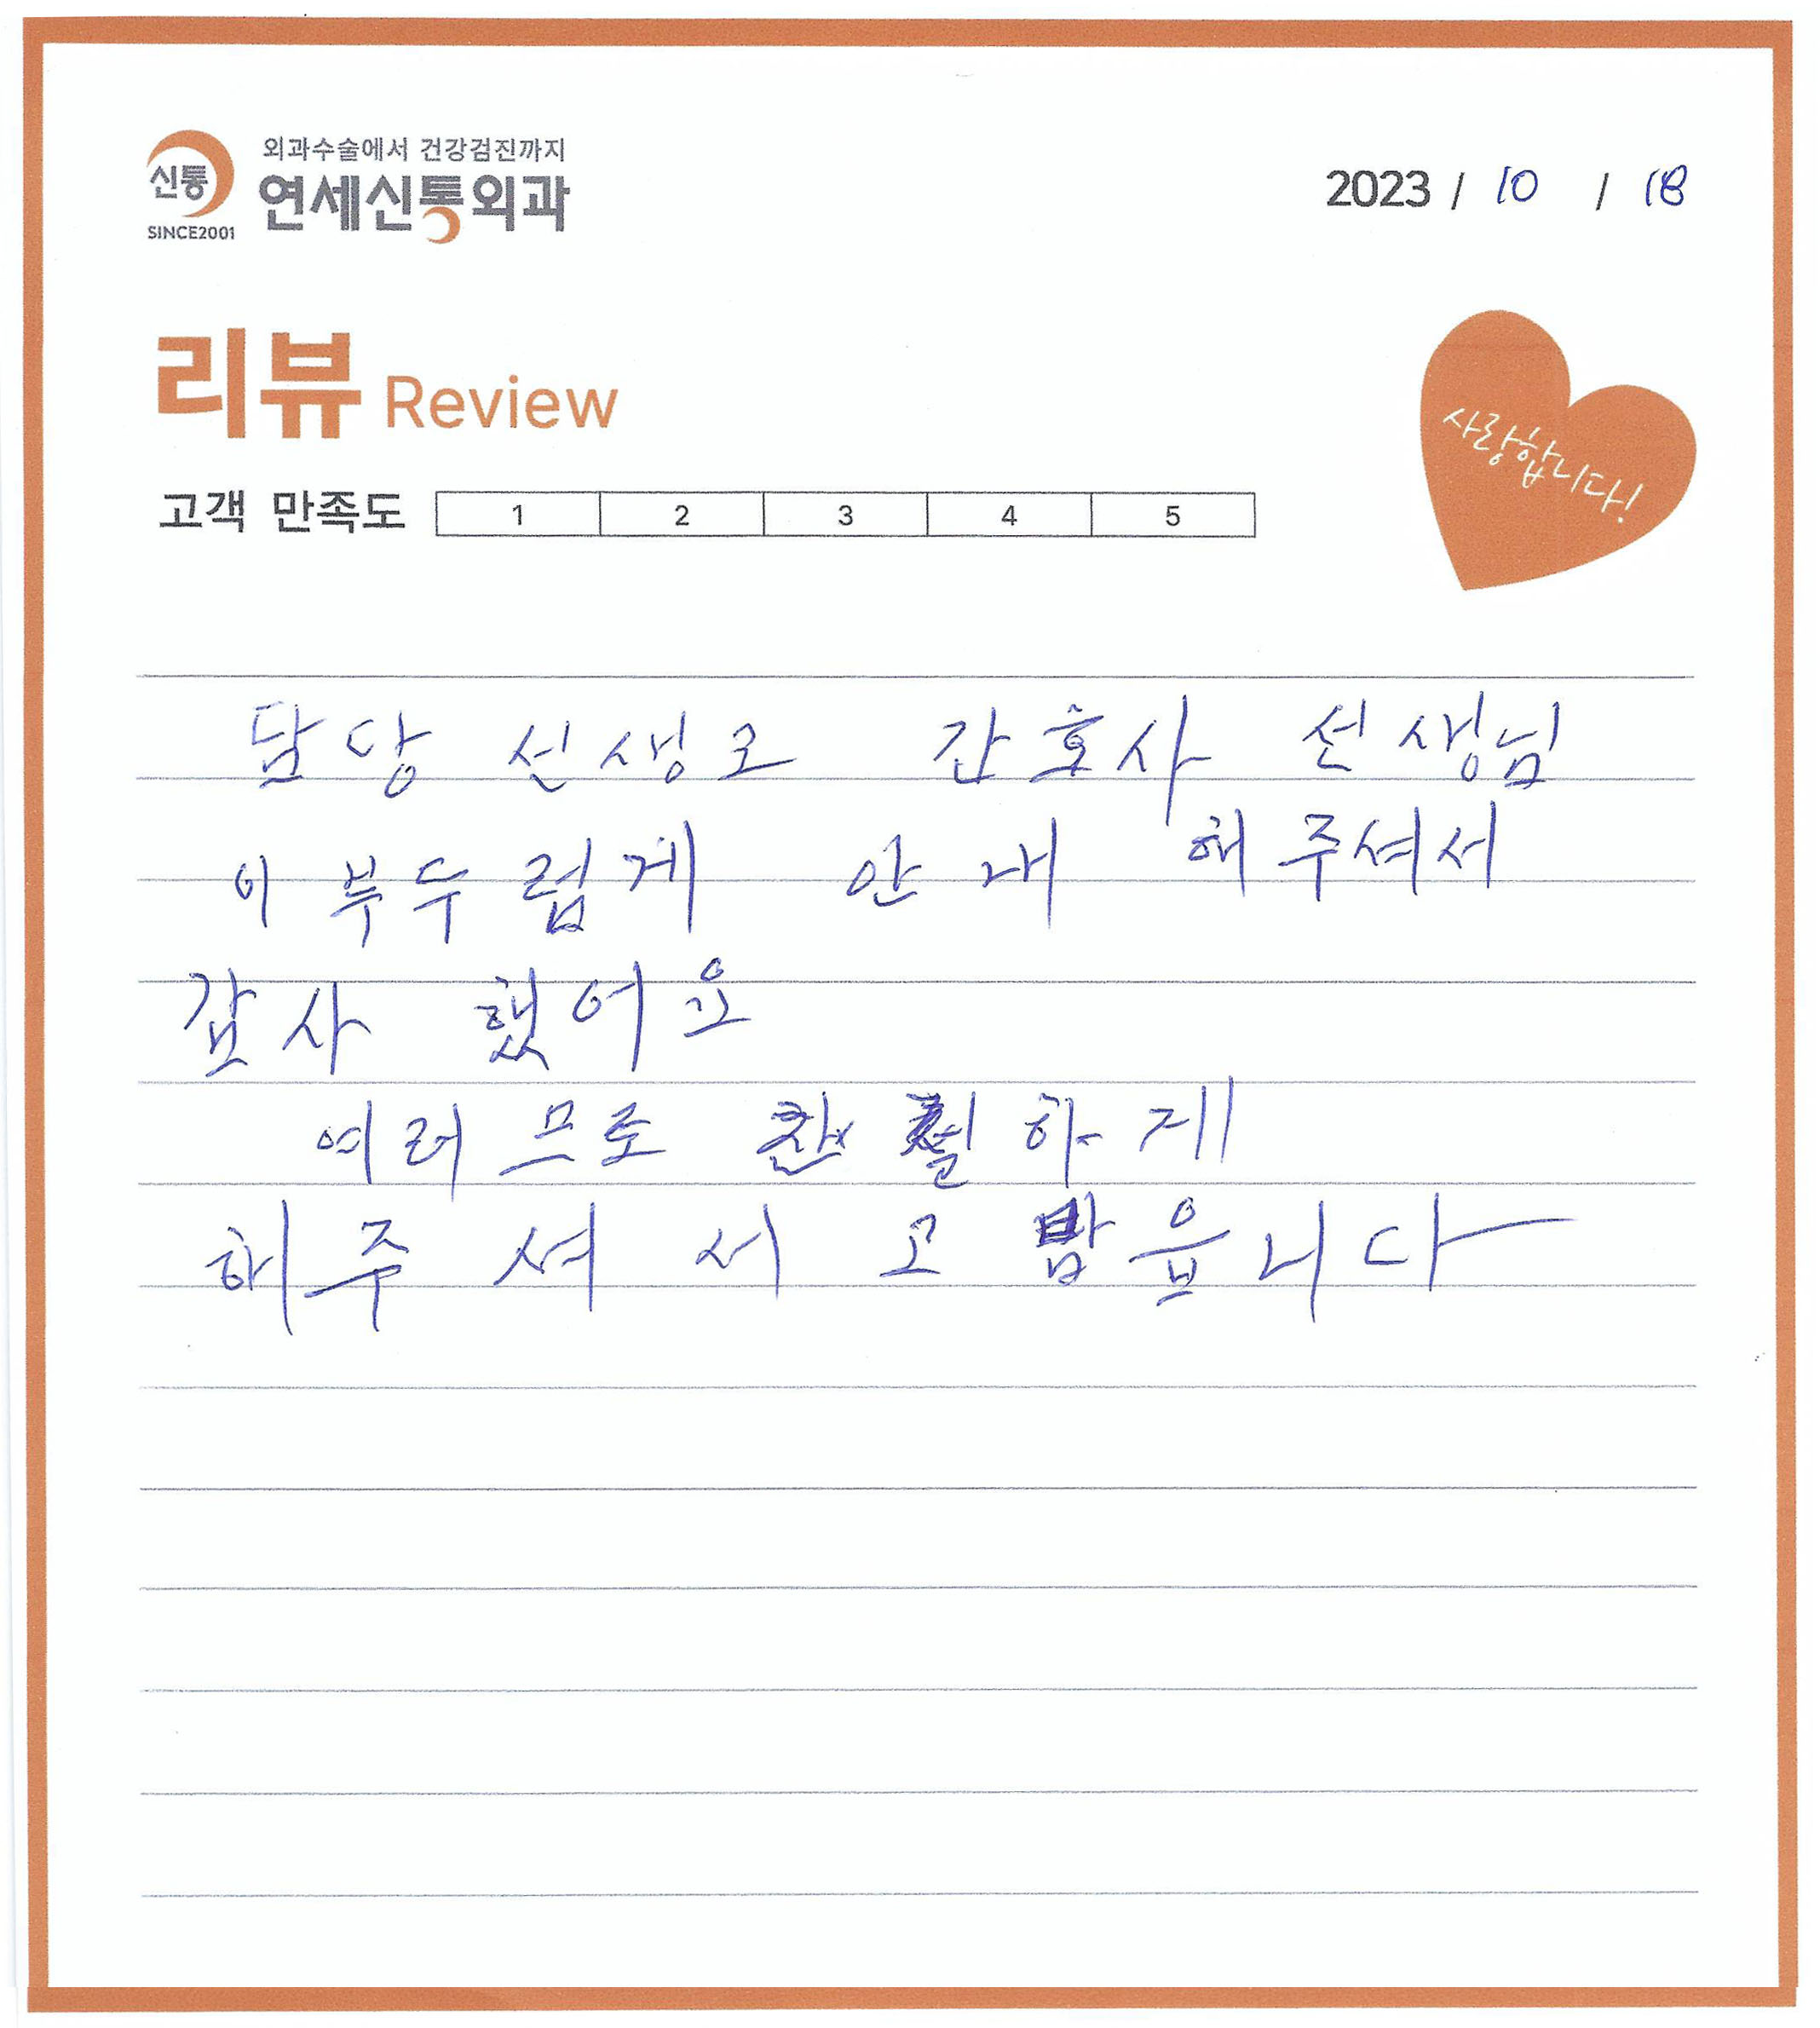 신통
SINCE2001
외과수술에서 건강검진까지
연세신통외과
2023 / 10 / 18
리뷰 Review
사랑합니다!
고객 만족도 1 2 3 4 5
담당 선생로 간호사 선생님
이 부두럽게 안내 해주셔서
감사 했어요
여러므로 친절하게
해주셔서 고맙읍니다